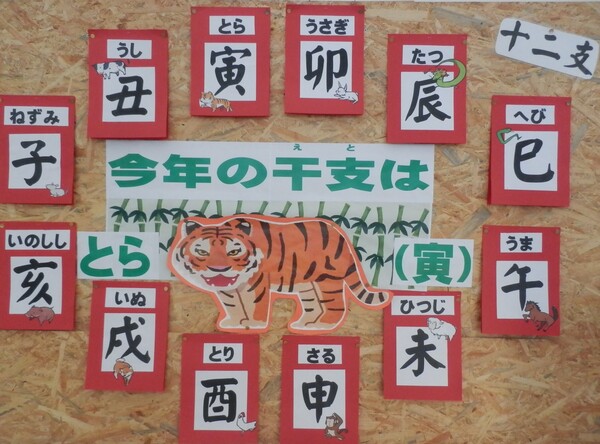 十二支
ねずみ
子
うし
丑
とら
寅
うさぎ
卯
たつ
辰
へび
巳
うま
午
ひつじ
未
さる
申
とり
酉
いぬ
戌
いのしし
亥
えと
今年の干支は
とら
(寅)